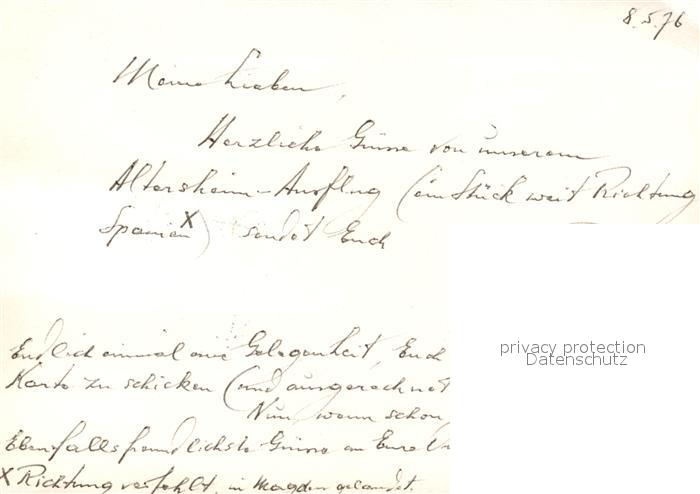 8.5.76
Meine Lieben,
Herzliche Grüsse von unserem
Altersheim-Ausflug (ein Stück weit Richtung
Spanien X) sendet Euch
Endlich einmal eine Gelegenheit, Euch
Karte zu schicken (und ausgerechnet
Nun, wenn schon,
Ebenfalls freundlichste Grüsse an Eure
X Richtung verfehlt, in Magden gelandet.
privacy protection
Datenschutz